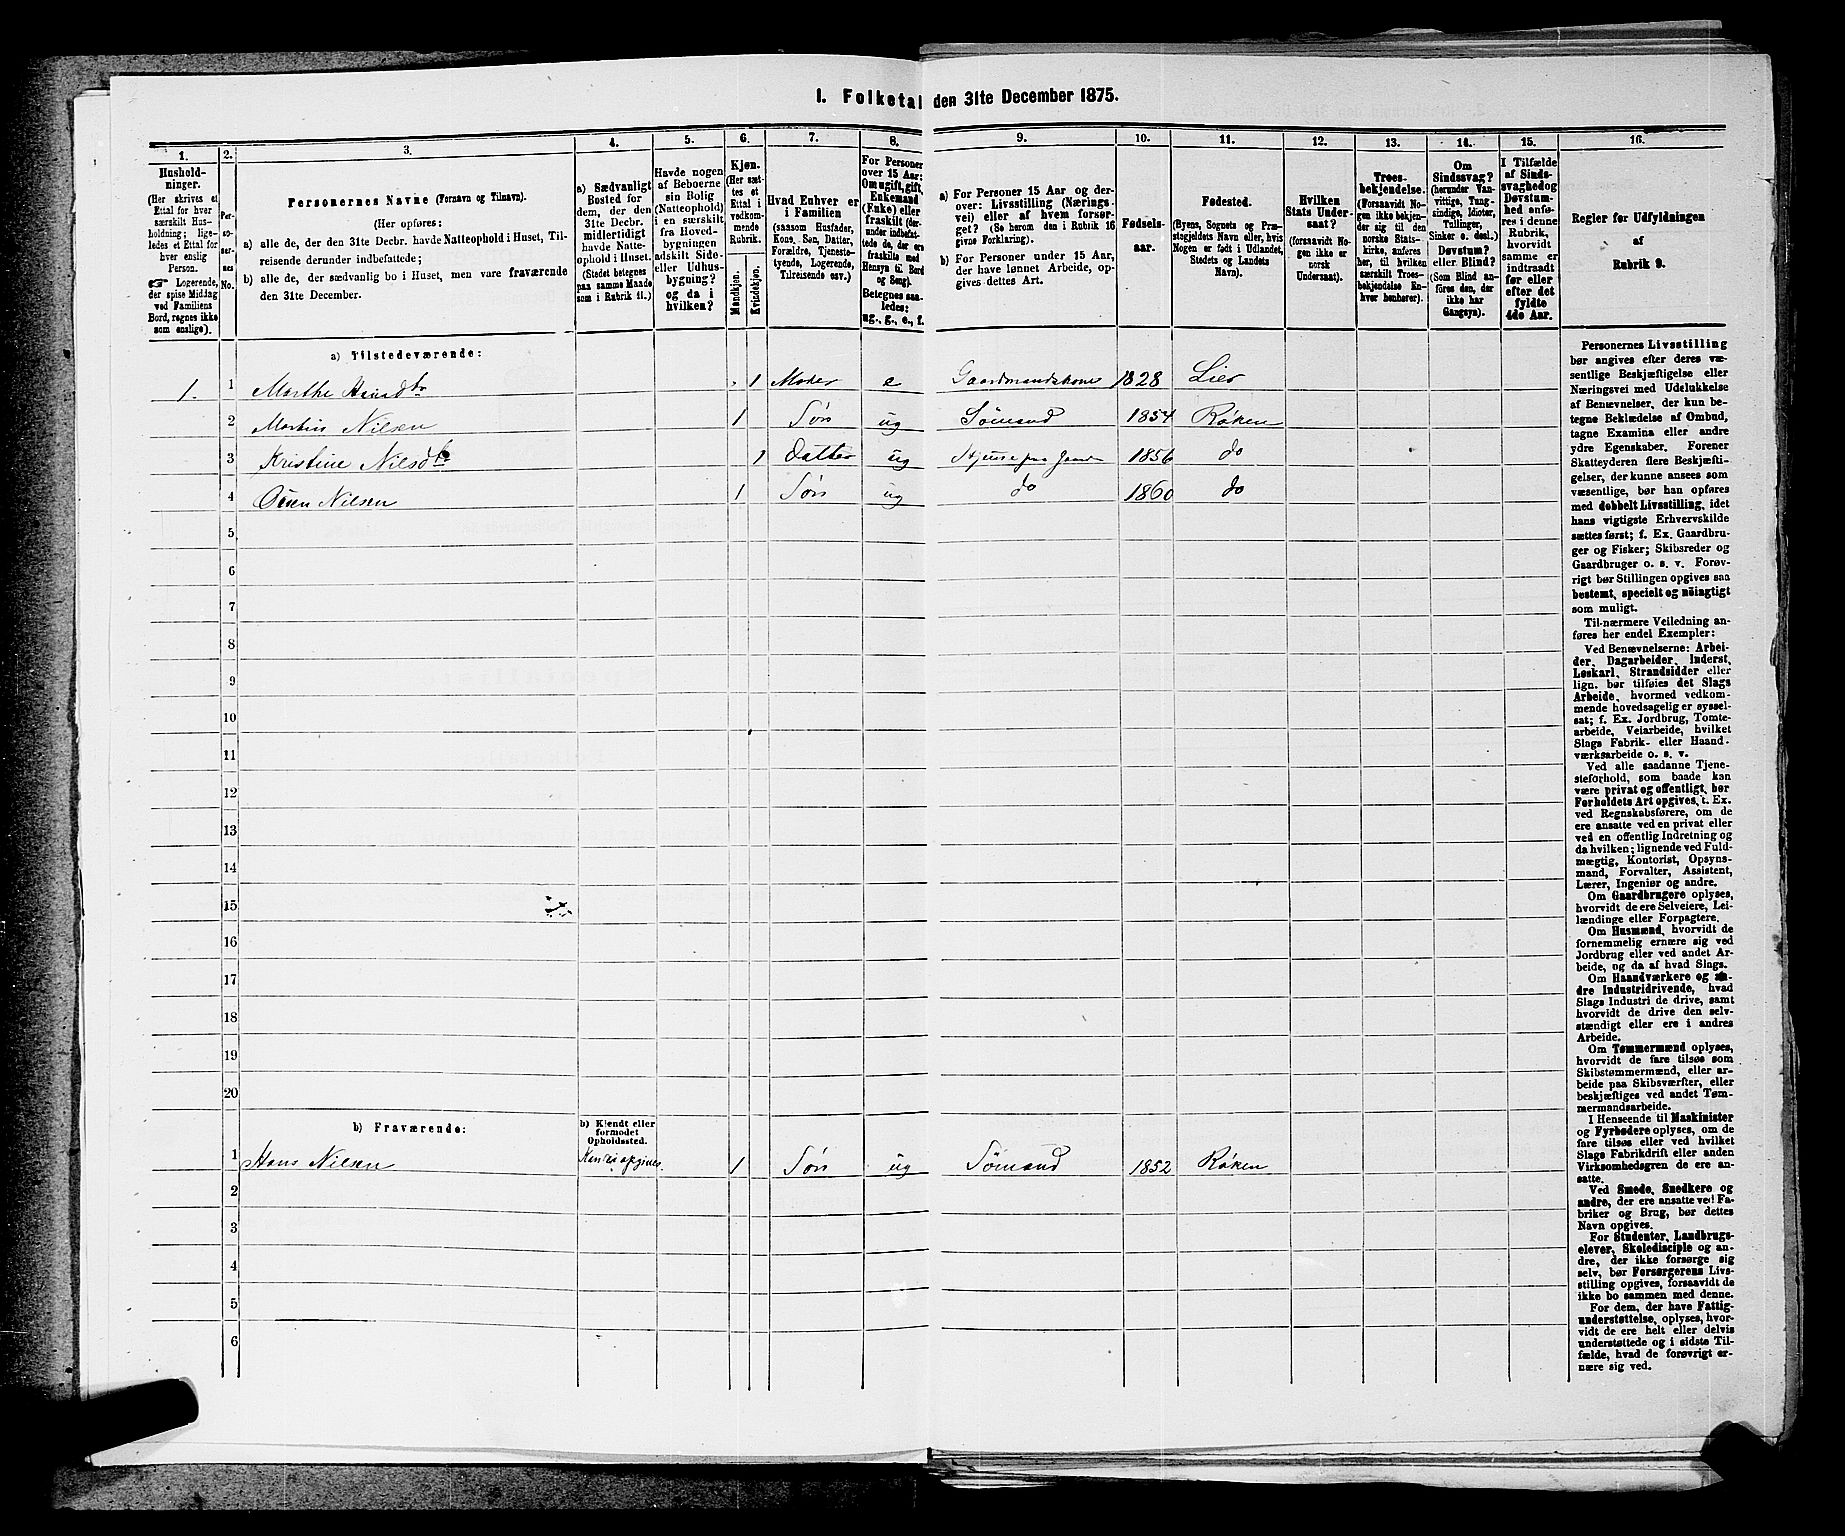 I. Folketal den 31te December 1875.
1.
2.
3.
4.
5.
6.
7.
8.
9.
10.
11.
12.
13.
14.
15.
16.
Hushold-
ninger.
(Her skrives et
Ettal for hver
særskilt Hus-
holdning; lige-
ledes et Ettal for
hver enslig
Person.
☞ Logerende,
der spise Middag
ved Familiens
Bord, regnes ikke
som enslige).
Per-
so-
ner-
nes
No.
Personernes Navne (Fornavn og Tilnavn).
(Her opføres:
a) alle de, der den 31te Decbr. havde Natteophold i Huset, Til-
reisende derunder indbefattede;
b) alle de, der sædvanlig bo i Huset, men vare fraværende
den 31te December.
a) Sædvanligt
Bosted for
dem, der den
31te Decbr.
midlertidigt
havde Natte-
ophold i Huset.
(Stedet betegnes
paa samme Maade
som i Rubrik 11.)
Havde nogen
af Beboerne
sin Bolig
(Natteophold)
i en særskilt
fra Hoved-
bygningen
adskilt Side-
eller Udhus-
bygning?
og da i
hvilken?
Kjøn.
(Her sæt-
tes et
Ettal i
vedkom-
mende
Rubrik.
Mandkjøn.
Kvindekjøn.
Hvad Enhver er
i Familien
(saasom Husfader,
Kone, Søn, Datter,
Forældre, Tjeneste-
tyende, Logerende,
Tilreisende osv.)
For Personer
over 15 Aar:
Om ugift, gift,
Enkemand
(Enke) eller
fraskilt (der-
under indbefat-
tede de, der ere
fraskilte med
Hensyn til Bord
og Seng).
Betegnes saa-
ledes:
ug., g., e., f.
a) For Personer 15 Aar og der-
over: Livsstilling (Nærings-
vei) eller af hvem forsør-
get? (Se herom den i Rubrik 16
givne Forklaring).
b) For Personer under 15 Aar,
der have lønnet Arbeide, op-
gives dettes Art.
Fødsels-
aar.
Fødested.
(Byens, Sognets og Præ-
stegjeldets Navn eller, hvis
Nogen er født i Udlandet,
Stedets og Landets
Navn).
Hvilken
Stats Under-
saat?
(forsaavidt No-
gen ikke er
norsk
Undersaat).
Troes-
bekjendelse.
(Forsaavidt No-
gen ikke bekjen-
der sig til den
norske Stats-
kirke, anføres
her, til hvilken
særskilt Troes-
bekjendelse En-
hver henhører).
Om
Sindssvag?
(herunder Van-
vittige, Tung-
sindige, Idioter,
Tullinger,
Sinker o. desl.)
Døvstum?
eller Blind?
(Som Blind an-
føres den, der
ikke har
Gangsyn).
I Tilfælde
af Sinds-
svaghed og
Døvstum-
hed anfø-
res i denne
Rubrik,
hvorvidt
samme er
indtraadt
før eller
efter det
fyldte
4de Aar.
Regler for Udfyldningen
af
Rubrik 9.
a) Tilstedeværende:
1. 1 Marthe Hansdtr 1 Moder e Gaardmandskone 1828 Lier
2 Martin Nilsen 1 Søn ug Sømand 1854 Røken
3 Kristine Nilsdtr 1 Datter ug 1856 do
4 Nilsen 1 Søn ug do 1860 do
5
6
7
8
9
10
11
12
13
14
15
16
17
18
19
20
b) Fraværende:
b) Kjendt eller
formodet
Opholdssted.
1 Hans Nilsen Kan ei opgives 1 Søn ug Sømand 1852 Røken
2
3
4
5
6
Personernes Livsstilling
bør angives efter deres væ-
sentlige Beskjæftigelse eller
Næringsvei med Udelukkelse
af Benævnelser, der kun be-
tegne Beklædelse af Ombud,
tagne Examina eller andre
ydre Egenskaber. Forener
Skatteyderen flere Beskjæfti-
gelser, der kunne ansees som
væsentlige, bør han opføres
med dobbelt Livsstilling, idet
hans vigtigste Erhvervskilde
sættes først; f. Ex. Gaardbru-
ger og Fisker; Skibsreder og
Gaardbruger o. s. v. Forøv-
rigt bør Stillingen opgives saa
bestemt, specielt og nöiagtigt
som muligt.
Til nærmere Veiledning an-
føres her endel Exempler:
Ved Benævnelserne: Arbei-
der, Dagarbeider, Inderst,
Løskarl, Strandsidder eller
lign. bør tilføies det Slags
Arbeide, hvormed vedkom-
mende hovedsagelig er syssel-
sat; f. Ex. Jordbrug, Tomte-
arbeide, Veiarbeide, hvilket
Slags Fabrik- eller Haand-
værksarbeide o. s. v.
Ved alle saadanne Tjene-
steforhold, som baade kan
være privat og offentligt, bør
Forholdets Art opgives, t. Ex.
ved Regnskabsførere, om de
ere ansatte ved en privat eller
ved en offentlig Indretning og
da hvilken; lignende ved Fuld-
mægtig, Kontorist, Opsyns-
mand, Forvalter, Assistent,
Lærer, Ingeniør og andre.
Om Gaardbrugere oplyses,
hvorvidt de ere Selveiere, Lei-
lændinge eller Forpagtere.
Om Husmænd, hvorvidt de
fornemmelig ernære sig ved
Jordbrug eller ved andet Ar-
beide, og da af hvad Slags.
Om Haandværkere og an-
dre Industridrivende, hvad
Slags Industri de drive, samt
hvorvidt de drive den selv-
stændigt eller ere i andres
Arbeide.
Om Tømmermænd oplyses,
hvorvidt de fare tilsøs som
Skibstømmermænd, eller ar-
beide paa Skibsværfter, eller
beskjæftiges ved andet Tøm-
mermandsarbeide.
I Henseende til Maskinister
og Fyrbødere oplyses, om de
fare tilsøs eller ved hvilket
Slags Fabrikdrift eller anden
Virksomhedsgren de ere an-
satte.
Ved Smede, Snedkere og
andre, der ere ansatte ved Fa-
briker og Brug, bør dettes
Navn opgives.
For Studenter, Landbrugs-
elever, Skoledisciple og an-
dre, der ikke forsørge sig
selv, bør Forsørgerens Livs-
stilling opgives, forsaavidt de
ikke bo sammen med denne.
For dem, der have Fattig-
understøttelse, oplyses, hvor-
vidt de ere helt eller delvis
understøttede og i sidste Til-
fælde, hvad de forøvrigt er-
nære sig ved.